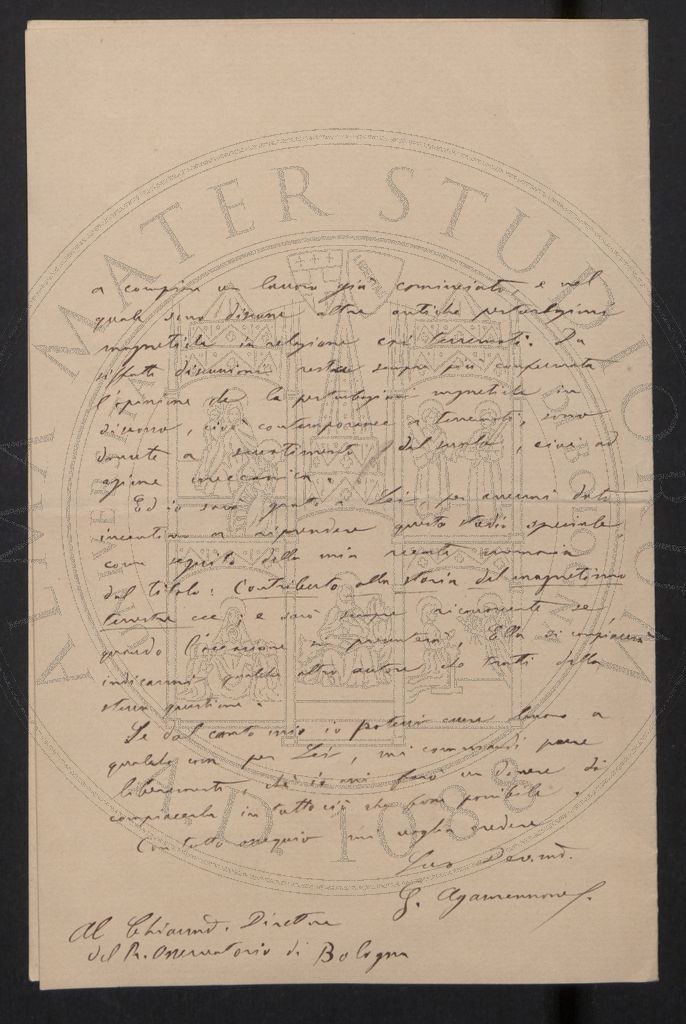 a compire un lavoro già cominciato, e nel
quale sono discusse altre antiche perturbazioni
magnetiche in relazione coi terremoti. Da
siffatte discussioni resta sempre più confermata
l'opinione che le perturbazioni magnetiche in
discorso, cioè contemporanee a terremoti, sono
dovute a scuotimento del suolo, cioè ad
azione meccanica.
Ed io sarò grato a Lei, per avermi dato
incentivo a riprendere questo studio speciale,
come seguito della mia recente memoria
dal titolo: Contributo alla storia del magnetismo
terrestre ecc; e sarò sempre riconoscente se
quando l'occasione si presenterà, Ella si compiacerà
indicarmi qualche altro autore che tratti della
stessa questione.
Se dal canto mio io potessi essere buono a
qualche cosa per Lei, mi comandi pure
liberamente, chè io mi farò un dovere di
compiacerla in tutto ciò che sarà possibile.
Con tutto ossequio mi voglia credere
Suo Dev.mo
G. Agamennone
Al Chiarmo. Direttore
del R. Osservatorio di Bologna
ALMA MATER STUDIORUM
A.D. 1088